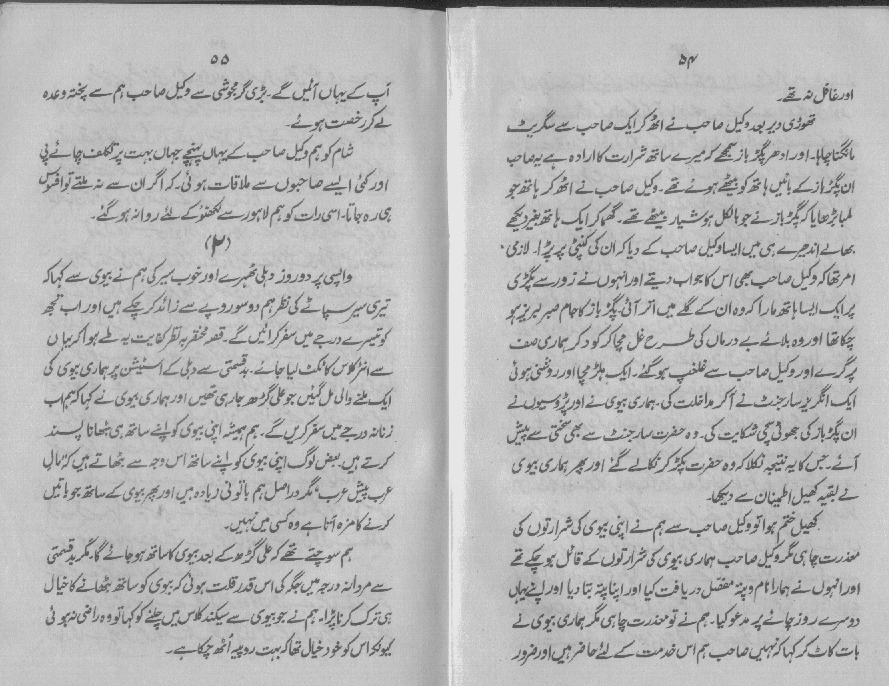 ۵۴
اور غافل نہ تھے۔
تھوڑی دیر بعد وکیل صاحب نے اٹھ کر ایک صاحب سے سگریٹ
مانگنا چاہا۔ اور ادھر پگڑ باز سمجھے کہ میرے ساتھ شرارت کا ارادہ ہے یہ صاحب
ان پگڑ باز کے بائیں ہاتھ کو بیٹھے ہوئے تھے۔ وکیل صاحب نے اٹھ کر ہاتھ جو
لمبا بڑھایا کہ پگڑ باز نے جو بالکل ہوشیار بیٹھے تھے۔ گھما کر ایک ہاتھ بغیر دیکھے
بھالے اندھیرے ہی میں ایسا وکیل صاحب کے دیا کہ ان کی کنپٹی پر پڑا۔ لازمی
امر تھا کہ وکیل صاحب بھی اس کا جواب دیتے اور انہوں نے زور سے پگڑی
پر ایک ایسا ہاتھ مارا کہ وہ ان کے گلے میں اتر آئی۔ پگڑ باز کا جام صبر لبریز ہو
چکا تھا اور وہ بلائے بے درماں کی طرح غل مچا کر کود کر ہماری صف
پر گرے اور وکیل صاحب سے غلغپ ہو گئے۔ ایک ہلڑ مچا اور روشنی ہوئی
ایک انگریز سارجنٹ نے آکر مداخلت کی۔ ہماری بیوی نے اور پڑوسیوں نے
ان پگڑ باز کی جھوٹی سچی شکایت کی۔ وہ حضرت سارجنٹ سے بھی سختی سے پیش
آئے۔ جس کا یہ نتیجہ نکلا کہ وہ حضرت پکڑ کر نکالے گئے اور پھر ہماری بیوی
نے بقیہ کھیل اطمینان سے دیکھا۔
کھیل ختم ہوا تو وکیل صاحب سے ہم نے اپنی بیوی کی شرارتوں کی
معذرت چاہی مگر وکیل صاحب ہماری بیوی کی شرارتوں کے قائل ہو چکے تھے
اور انہوں نے ہمارا نام و پتہ مفصل دریافت کیا اور اپنا پتہ بتا دیا اور اپنے یہاں
دوسرے روز چائے پر مدعو کیا۔ ہم نے تو معذرت چاہی مگر ہماری بیوی نے
بات کاٹ کر کہا کہ نہیں صاحب ہم اس خدمت کے لئے حاضر ہیں اور ضرور
۵۵
آپ کے یہاں آئیں گے۔ بڑی گرمجوشی سے وکیل صاحب ہم سے پختہ وعدہ
لے کر رخصت ہوئے۔
شام کو ہم وکیل صاحب کے یہاں پہنچے جہاں بہت پر تکلف چائے پی
اور کئی ایسے صاحبوں سے ملاقات ہوئی۔ کہ اگر ان سے نہ ملتے تو افسوس
ہی رہ جاتا۔ اسی رات کو ہم لاہور سے لکھنؤ کے لئے روانہ ہو گئے۔
(۲)
واپسی پر دو روز دہلی ٹھہرے اور خوب سیر کی ہم نے بیوی سے کہا کہ
تیری سیر سپاٹے کی نظر ہم دو سو روپے سے زائد کر چکے ہیں اور اب تجھ
کو تیسرے درجے میں سفر کرائیں گے۔ قصہ مختصر بہ نظر کفایت یہ طے ہوا کہ یہاں
سے انٹر کلاس کا ٹکٹ لیا جائے۔ بدقسمتی سے دہلی کے اسٹیشن پر ہماری بیوی کی
ایک ملنے والی مل گئیں جو علی گڑھ جا رہی تھیں اور ہماری بیوی نے کہا کہ ہم اب
زنانہ درجے میں سفر کریں گے۔ ہم ہمیشہ اپنی بیوی کو اپنے ساتھ ہی بٹھانا پسند
کرتے ہیں۔ بعض لوگ اپنی بیوی کو اپنے ساتھ اس وجہ سے بٹھاتے ہیں کہ "مال
عرب پیش عرب" مگر دراصل ہم باتونی زیادہ ہیں اور پھر بیوی کے ساتھ جو باتیں
کرنے کا مزہ آتا ہے وہ کسی میں نہیں۔
ہم سوچتے تھے کہ علی گڑھ کے بعد بیوی کا ساتھ ہو جائے گا۔ مگر بدقسمتی
سے مردانہ درجہ میں جگہ کی اس قدر قلت ہوئی کہ بیوی کو ساتھ بٹھانے کا خیال
ہی ترک کرنا پڑا۔ ہم نے جو بیوی سے سیکنڈ کلاس میں چلنے کو کہا تو وہ راضی نہ ہوئی
کیونکہ اس کو خود خیال تھا کہ بہت روپیہ اُٹھ چکا ہے۔